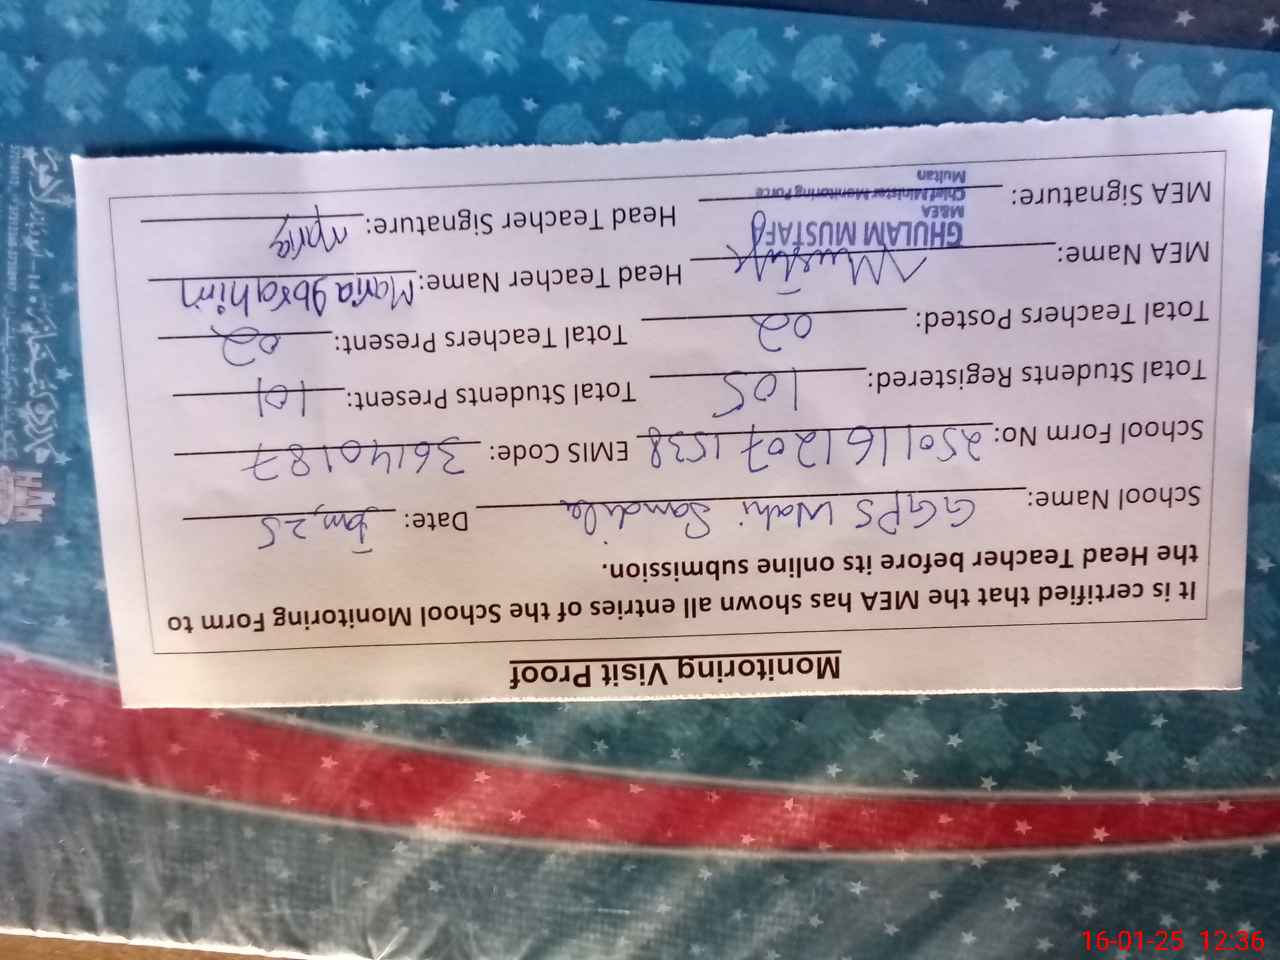 Monitoring Visit Proof
It is certified that the MEA has shown all entries of the School Monitoring Form to
the Head Teacher before its online submission.
School Name: GGPS Wahi Sandila Date: Jan, 25
School Form No: 25011612071538 EMIS Code: 36140187
Total Students Registered: 105 Total Students Present: 101
Total Teachers Posted: 02 Total Teachers Present: 02
MEA Name: Mustafa Head Teacher Name: Maria Ibrahim
GHULAM MUSTAFA
M&EA
Chief Minister Monitoring Force
Multan
MEA Signature: Head Teacher Signature: Maria
16-01-25 12:36